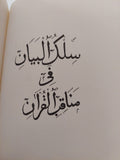 سلك البيان
في
مناقب القرآن